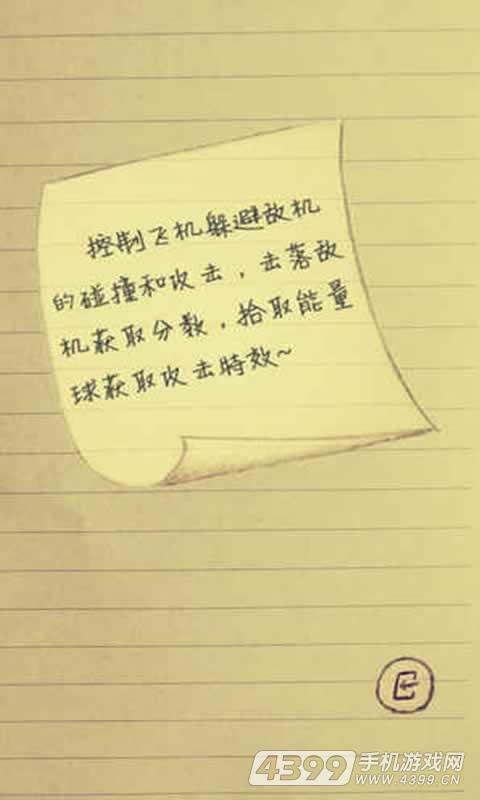 控制飞机躲避敌机
的碰撞和攻击，击落敌
机获取分数，拾取能量
球获取攻击特效~
4399手机游戏网
www.4399.cn